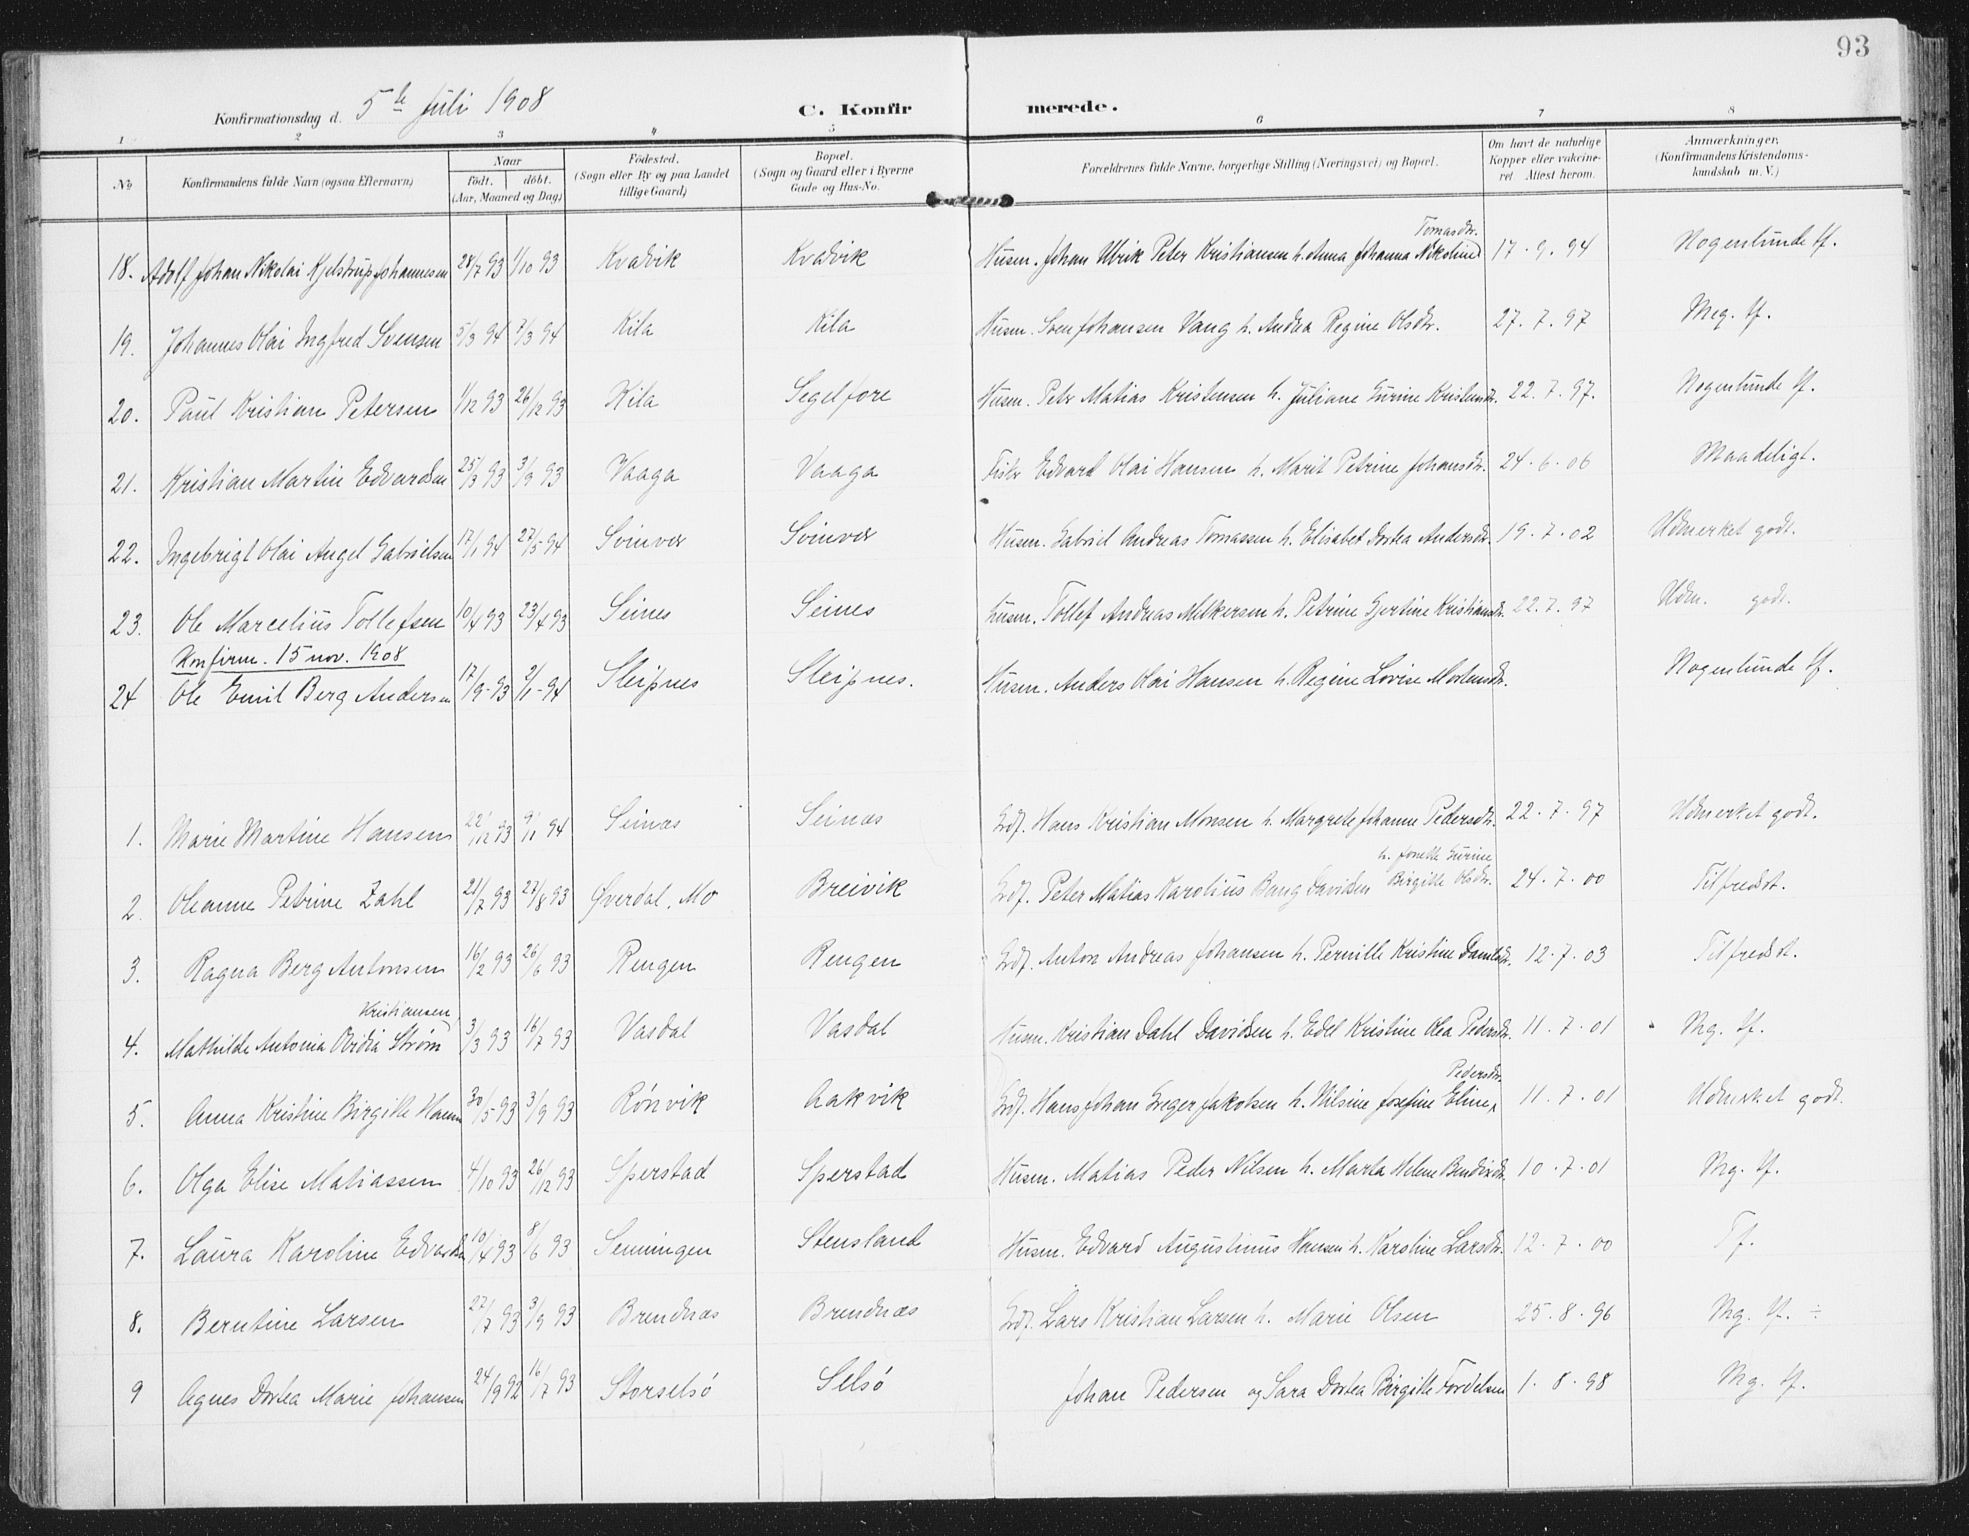 93
Konfirmationsdag d. 5te Juli 1908 C. Konfirmerede.
1 2 3 4 5 6 7 8
No Konfirmandens fulde Navn (ogsaa Efternavn) Naar födt. döbt. (Aar, Maaned og Dag) Födested. (Sogn eller By og paa Landet tillige Gaard) Bopæl. (Sogn og Gaard eller i Byerne Gade og Hus-No. Forældrenes fulde Navne, borgerlige Stilling (Næringsvei) og Bopæl. Om havt de naturlige Kopper eller vakcineret Attest herom. Anmærkninger. (Konfirmandens Kristendomskundskab m.V.)
18. Adolf Johan Nikolai Kjelstrup Johannesen 28/7 93 1/10 93 Kvadvik Kvadvik Husm. Johan Ulrik Peter Kristiansen h. Anna Johanna Nikoline Tomasdtr. 17.9.94 Nogenlunde tf.
19. Johannes Olai Ingfred Svensen 5/3 94 7/3 94 Kila Kila Husm. Sven Johansen Vang h. Andrea Regine Olsdtr. 27.7.97 Meg. tf.
20. Paul Kristian Petersen 1/12 93 26/12 93 Kila Segelfore Husm. Petr Matias Kristensen h. Juliane Gurine Kristensdtr. 22.7.97. Nogenlunde tf.
21. Kristian Martin Edvardsen 25/3 93 3/9 93 Vaaga Vaaga Fisker Edvard Olai Hansen h. Marit Petrine Johansdtr. 24.6.06 Maadeligt.
22. Ingebrigt Olai Angel Gabrielsen 17/1 94 27/5 94 Svinvær Svinvær Husm. Gabriel Andreas Tomassen h. Elisabet Dortea Andersdtr. 19.7.02 Udmerket godt.
23. Ole Marcelius Tollefsen 10/4 93 23/4 93 Seines Seines Husm. Tollef Andreas Melkersen h. Petrine Gjertine Kristiansdtr. 22.7.97 Udm. godt.
Konfirm. 15 nov. 1908
24 Ole Emil Berg Andersen 17/9-93 2/1-94 Sleipnes Sleipnes. Husm. Anders Olai Hansen h. Regine Lovise Mortensdtr. Nogenlunde tf.
1. Marie Martine Hansen 22/12 93 9/1 94 Seinæs Seinæs Grdf. Hans Kristian Monsen h. Margrete Johanne Pedersdtr. 22.7.97 Udmerket godt.
2. Oleanne Petrine Zahl 21/7 93 27/8 93 Øverdal, Mo Breivik Grdf. Peter Matias Karolius Bang Davidsen h. Jonette Gurine Birgitte Olsdtr. 24.7.00 Tilfredst.
3. Ragna Berg Antonsen 16/2 93 26/6 93 Rengen Rengen Grdf. Anton Andreas Johansen h. Pernille Kristine Danielsdtr. 12.7.03 Tilfredst.
4. Mathilde Antonia Ovidia Strøm Kristiansen 3/3 93 16/7 93 Vasdal Vasdal Husm. Kristian Dahl Davidsen h. Edel Kristine Olea Pedersdtr. 11.7.01 Mg. tf.
5. Anna Kristine Birgitte Hansen 30/5 93 3/9 93 Rönvik Aakvik Grdf. Hans Johan Greger Jakobsen h. Nilsine Josefine Eline Pedersdtr. 11.7.01 Udmerket godt.
6. Olga Elise Matiassen 4/10 93 26/12 93 Sperstad Sperstad Husm. Matias Peder Nilsen h. Marta Helene Bendixdtr. 10.7.01 Mg. tf.
7. Laura Karoline Edvardsen 10/4 93 8/6 93 Senningen Stensland Husm. Edvard Augustinus Hansen h. Karoline Larsdtr. 12.7.00 Tf.
8. Berntine Larsen 27/7 93 3/9 93 Brendnæs Brendnæs Grdf. Lars Kristian Larsen h. Marie Olsen 25.8.96 Mg. tf. ÷
9 Agnes Dortea Marie Johansen 24/9 92 16/7 93 Storselsö Selsö Johan Pedersen og Sara Dortea Birgitte Fordelsen 1.8.98 Mg. tf.